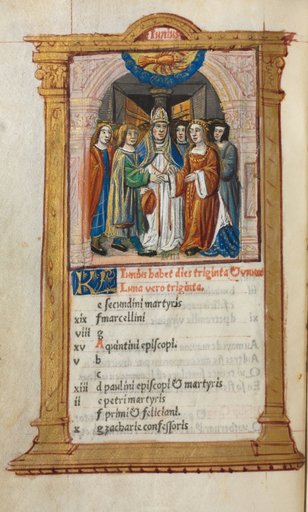 Iunius
KL Iunius habet dies triginta & vnum
Luna vero triginta.
e secundini martyris
xix f marcellini
viii g
xv A quintini episcopi.
v b
c
xiii d paulini episcopi & martyris
ii e petri martyris
f primi & feliciani.
x g zacharie confessoris